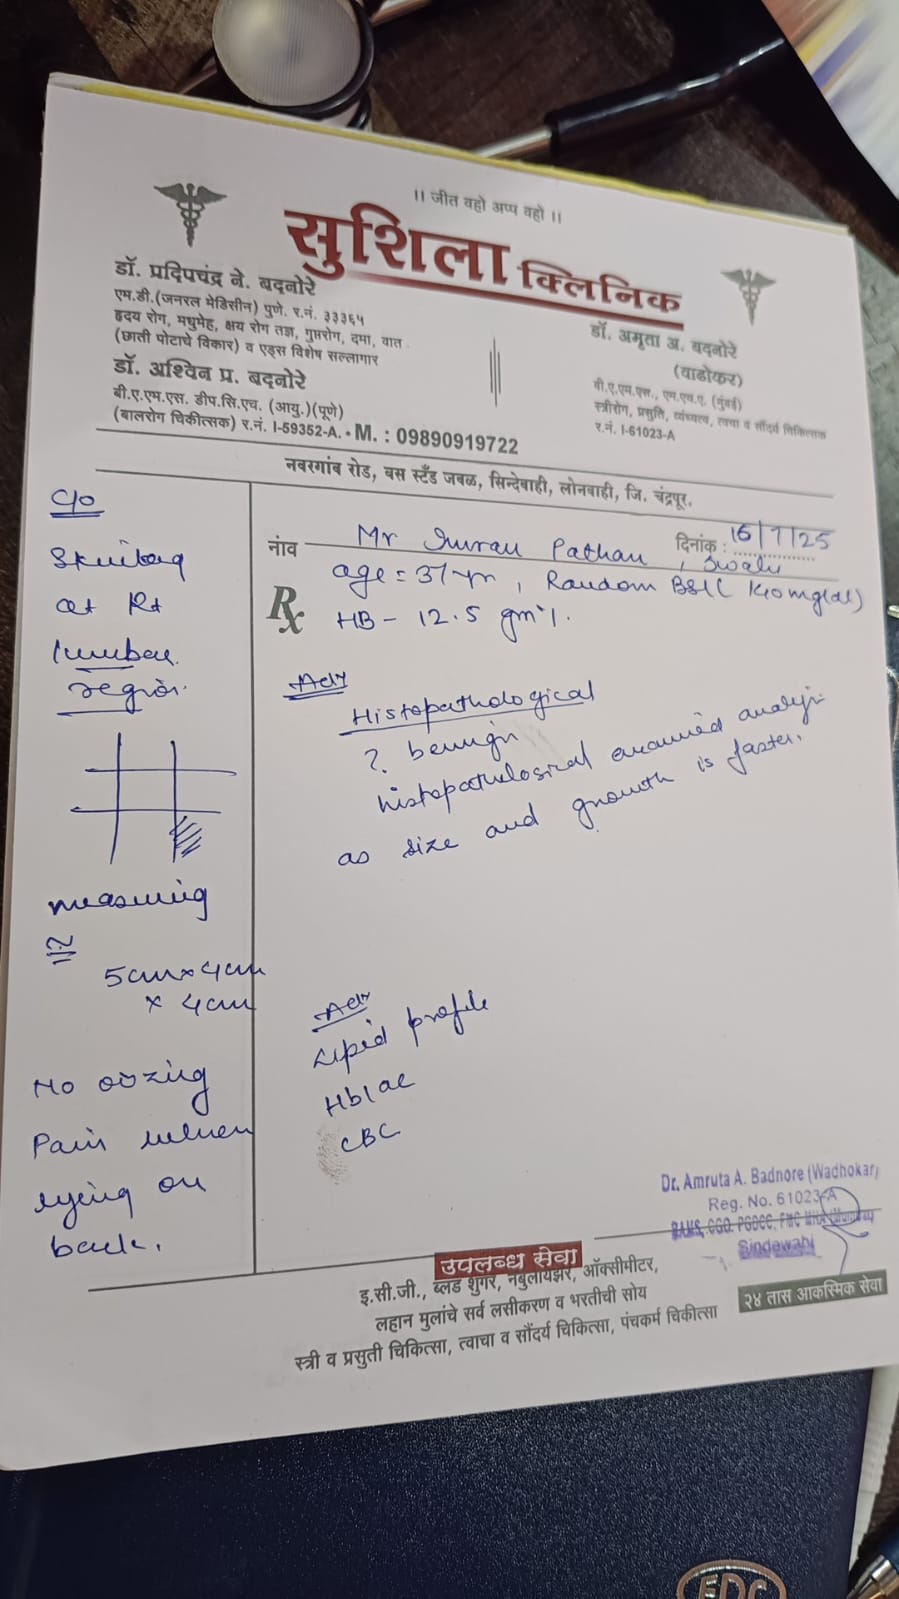 ।। जीत वहो अप्प वहो ।।
सुशिला क्लिनिक
डॉ. प्रदिपचंद्र ने. बदनोरे
एम.डी.(जनरल मेडिसीन) पुणे. र.नं. ३३३६५
हृदय रोग, मधुमेह, क्षय रोग तज्ञ, गुप्तरोग, दमा, वात
(छाती पोटाचे विकार) व एड्स विशेष सल्लागार
डॉ. अश्विन प्र. बदनोरे
बी.ए.एम.एस. डीप.सि.एच. (आयु.)(पूणे)
(बालरोग चिकीत्सक) र.नं. I-59352-A. • M. : 09890919722
डॉ. अमृता अ. बदनोरे
(वाढोकर)
बी.ए.एम.एस., एम.एच.ए. (मुंबई)
स्त्रीरोग, प्रसुति, वंध्यत्व, त्वचा व सौंदर्य चिकित्सक
र.नं. I-61023-A
नवरगांव रोड, बस स्टँड जवळ, सिन्देवाही, लोनवाही, जि. चंद्रपूर.
नांव Mr Imran Pathan दिनांक : 16/7/25
age = 37 yr, Random BSL( 140mg/dl)
Rx HB - 12.5 gm%.
C/o
Skintag
at Rt
lumbar
region.
measuring
≅
5cm x 4cm
x 4cm
No oozing
Pain when
lying on
back.
Adv
Histopathological
? benign
histopathological
as size and growth is faster.
Adv
Lipid profile
Hb1ac
CBC
Dr. Amruta A. Badnore (Wadhokar)
Reg. No. 61023-A
BAMS, CGO, PGDCC, FMC
Sindewahi
उपलब्ध सेवा
इ.सी.जी., ब्लड शुगर, नेबुलायझर, ऑक्सीमीटर,
लहान मुलांचे सर्व लसीकरण व भरतीची सोय
स्त्री व प्रसुती चिकित्सा, त्वाचा व सौंदर्य चिकित्सा, पंचकर्म चिकीत्सा
२४ तास आकस्मिक सेवा
EDC